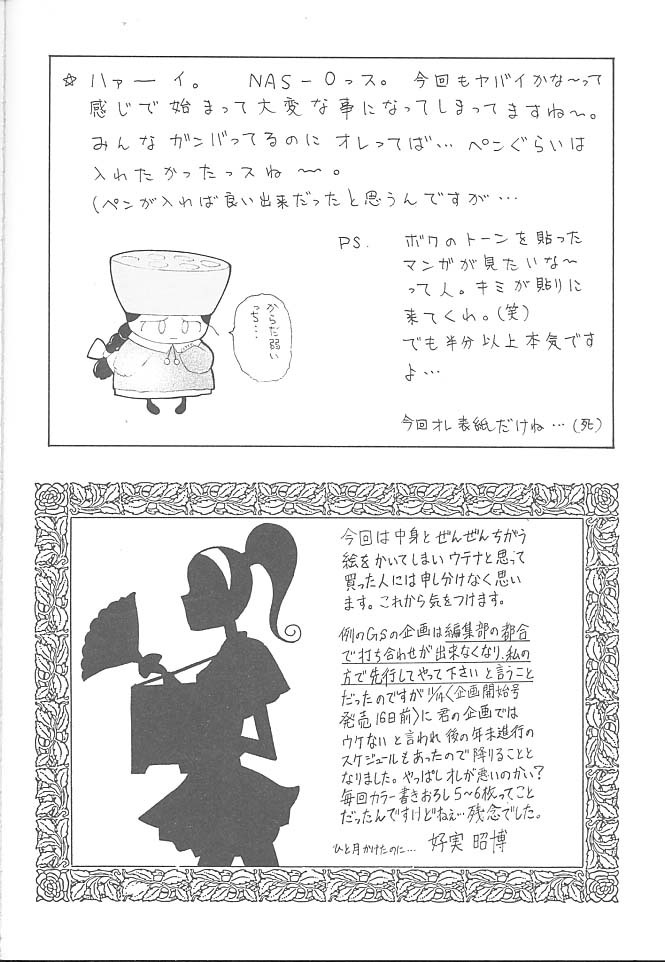 ☆ ハァーイ。 NAS-Oっス。今回もヤバイかな〜って
感じで始まって大変な事になってしまってますね〜。
みんなガンバってるのにオレってば… ペンぐらいは
入れたかったっスね 〜 。
(ペンが入れば良い出来だったと思うんですが…
PS. ボクのトーンを貼った
マンガが見たいな〜
って人。キミが貼りに
来てくれ。(笑)
でも半分以上本気です
よ…
からだ弱い
っち…
今回オレ表紙だけね…(死)
今回は中身とぜんぜんちがう
絵をかいてしまいウテナと思って
買った人には申し分けなく思い
ます。これから気をつけます。
例のGSの企画は編集部の都合
で打ち合わせが出来なくなり、私の
方で先行してやって下さいと言うこと
だったのですが11/14〈企画開始号
発売16日前〉に君の企画では
ウケないと言われ後の年末進行の
スケジュールもあったので降りることと
なりました。やっぱしオレが悪いのかい?
毎回カラー書きおろし5〜6枚ってこと
だったんですけどねぇ…残念でした。
ひと月かけたのに… 好実 昭博